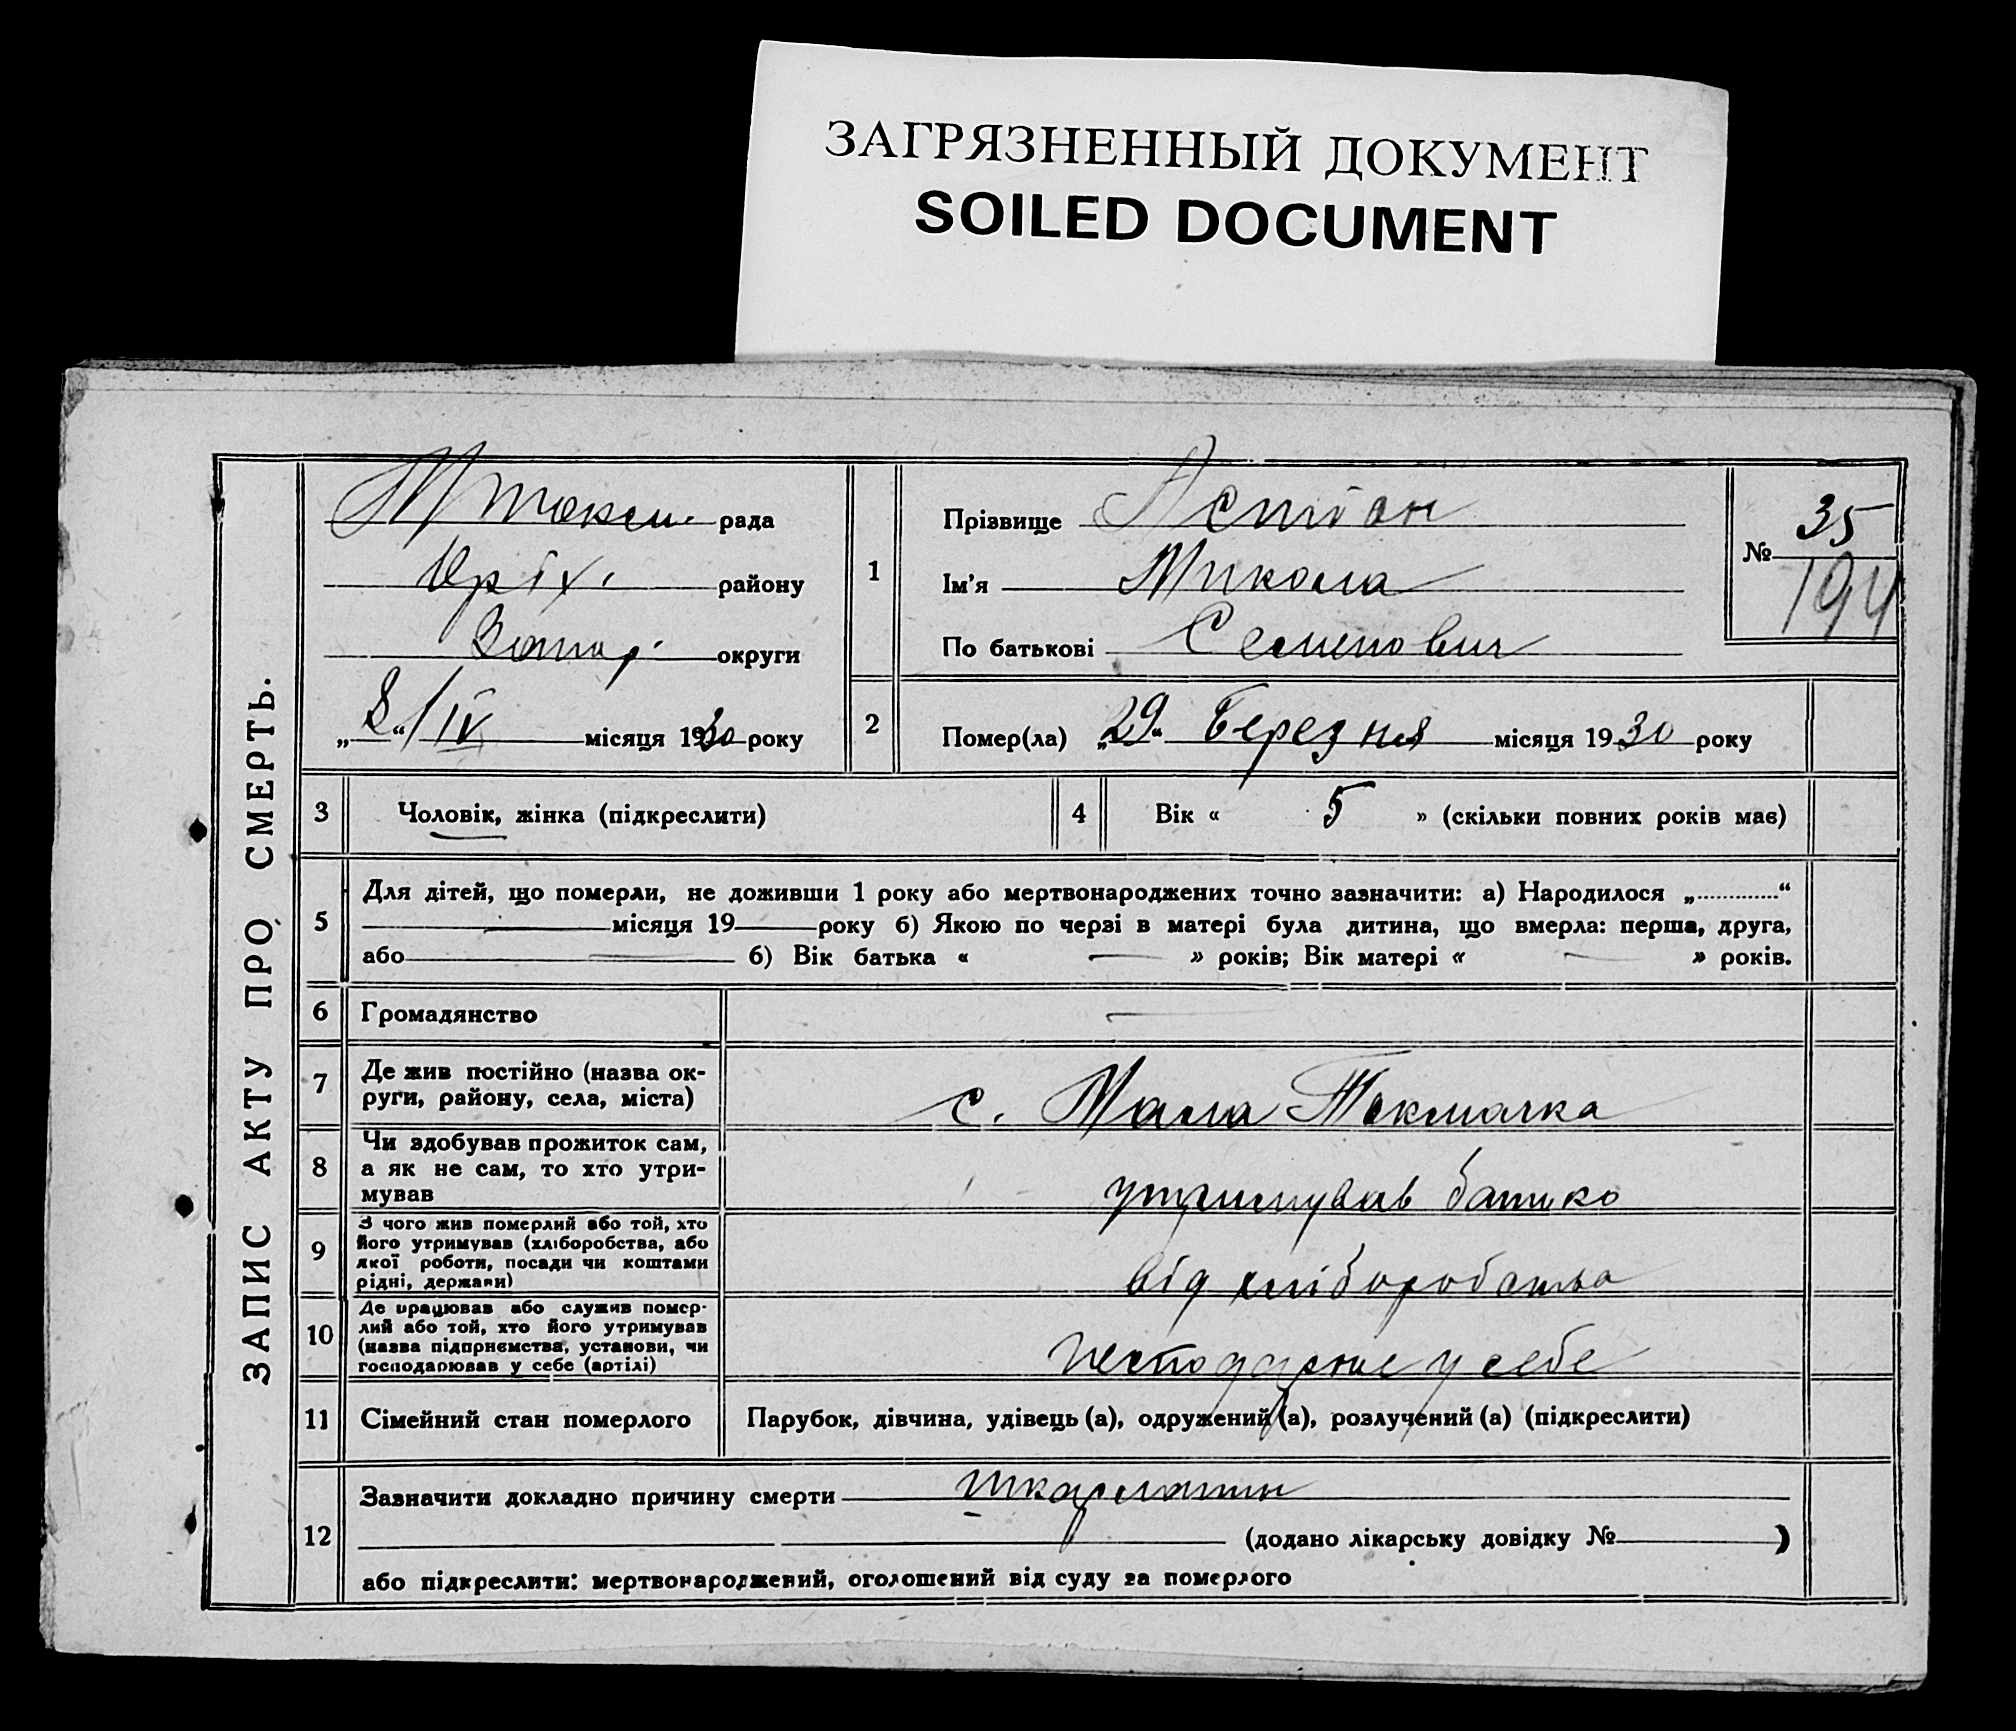 ЗАГРЯЗНЕННЫЙ ДОКУМЕНТ
SOILED DOCUMENT
ЗАПИС АКТУ ПРО СМЕРТЬ.
М Токм. рада
Оріх. району
Запор. округи
„8“/IV місяця 1930 року
1
Прізвище
Ім'я Микола
По батькові Семенович
№ 35
194
2 Помер(ла) „29“ Березня місяця 1930 року
3 Чоловік, жінка (підкреслити)
4 Вік « 5 » (скільки повних років має)
5 Для дітей, що померли, не доживши 1 року або мертвонароджених точно зазначити: а) Народилося „............“
місяця 19 року б) Якою по черзі в матері була дитина, що вмерла: перша, друга,
або б) Вік батька « — » років; Вік матері « — » років.
6 Громадянство —
7 Де жив постійно (назва ок-
руги, району, села, міста)
с. Мала Токмачка
8 Чи здобував прожиток сам,
а як не сам, то хто утри-
мував
утримував батько
9 З чого жив померлий або той, хто
його утримував (хліборобства, або
якої роботи, посади чи коштами
рідні, держави)
від хліборобства
10 Де працював або служив помер-
лий або той, хто його утримував
(назва підприємства, установи, чи
господарював у себе (артілі)
господарює у себе
11 Сімейний стан померлого Парубок, дівчина, удівець (а), одружений (а), розлучений (а) (підкреслити)
12 Зазначити докладно причину смерти шкарлатин
(додано лікарську довідку № )
або підкреслити: мертвонароджений, оголошений від суду за померлого